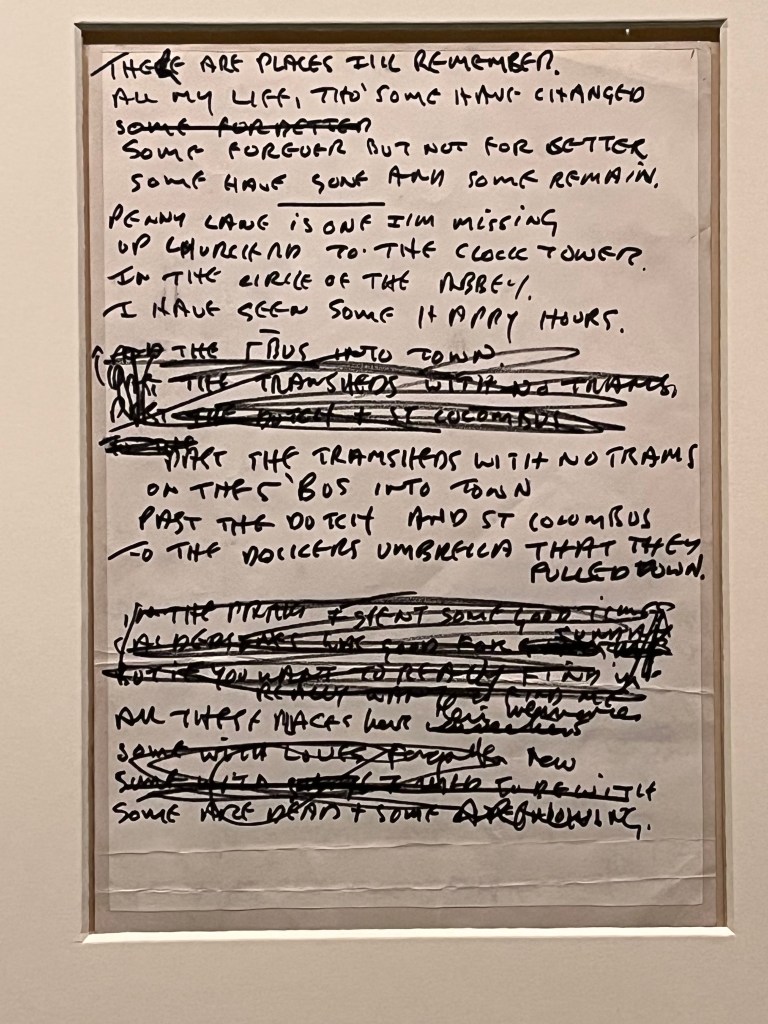 THERE ARE PLACES ILL REMEMBER.
ALL MY LIFE, THO' SOME HAVE CHANGED
SOME FORBETTER
SOME FOREVER BUT NOT FOR BETTER
SOME HAVE GONE AND SOME REMAIN.
PENNY LANE IS ONE I'M MISSING
UP CHURCH RD TO THE CLOCK TOWER.
IN THE CIRCLE OF THE ABBEY.
I HAVE SEEN SOME HAPPY HOURS.
THE 5 BUS INTO TOWN
PAST THE TRAMSHEDS WITH NO TRAMS,
PAST THE DUTCH + ST COLOMBUS
PAST THE TRAMSHEDS WITH NO TRAMS
ON THE 5 BUS INTO TOWN
PAST THE DUTCH AND ST COLOMBUS
TO THE DOCKERS UMBRELLA THAT THEY
PULLED DOWN.
IN THE PARKS I SPENT SOME GOOD TIMES
WAS GOOD FOR
BUT IF YOU WANT TO REALLY FIND
REALLY WANT TO FIND ME
ALL THESE PLACES HAVE their memories
SOME WITH LOVES forgotten NOW
SOME WITH TO BE WITH
SOME ARE DEAD + SOME ARE LIVING.